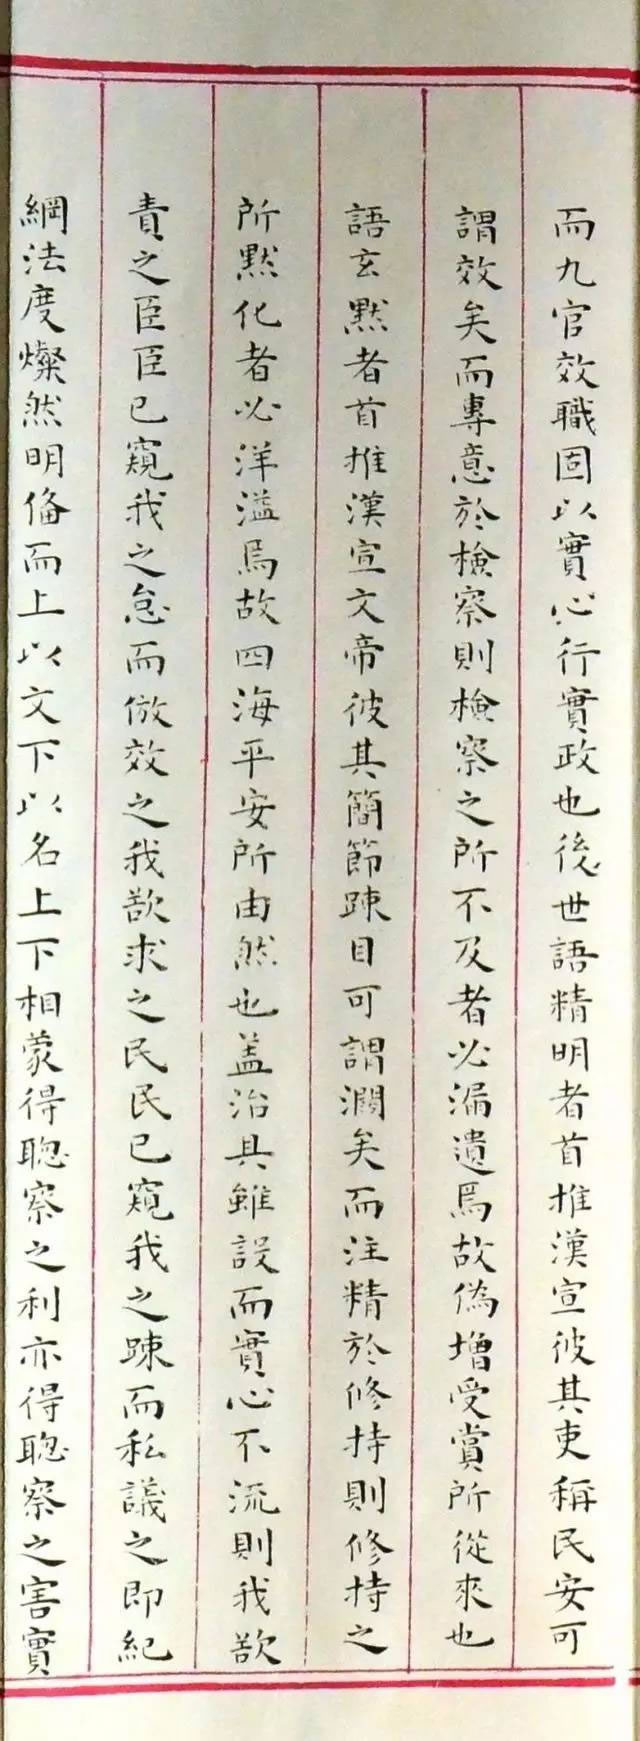 而九官效職固以實心行實政也後世語精明者首推漢宣彼其吏稱民安可
謂效矣而專意於檢察則檢察之所不及者必漏遺焉故偽增受賞所從來也
語玄默者首推漢宣文帝彼其簡節踈目可謂濶矣而注精於修持則修持之
所默化者必洋溢焉故四海平安所由然也盖治具雖設而實心不流則我欲
責之臣臣已窺我之怠而倣效之我欲求之民民已窺我之踈而私議之即紀
綱法度燦然明俻而上以文下以名上下相蒙得聦察之利亦得聦察之害實